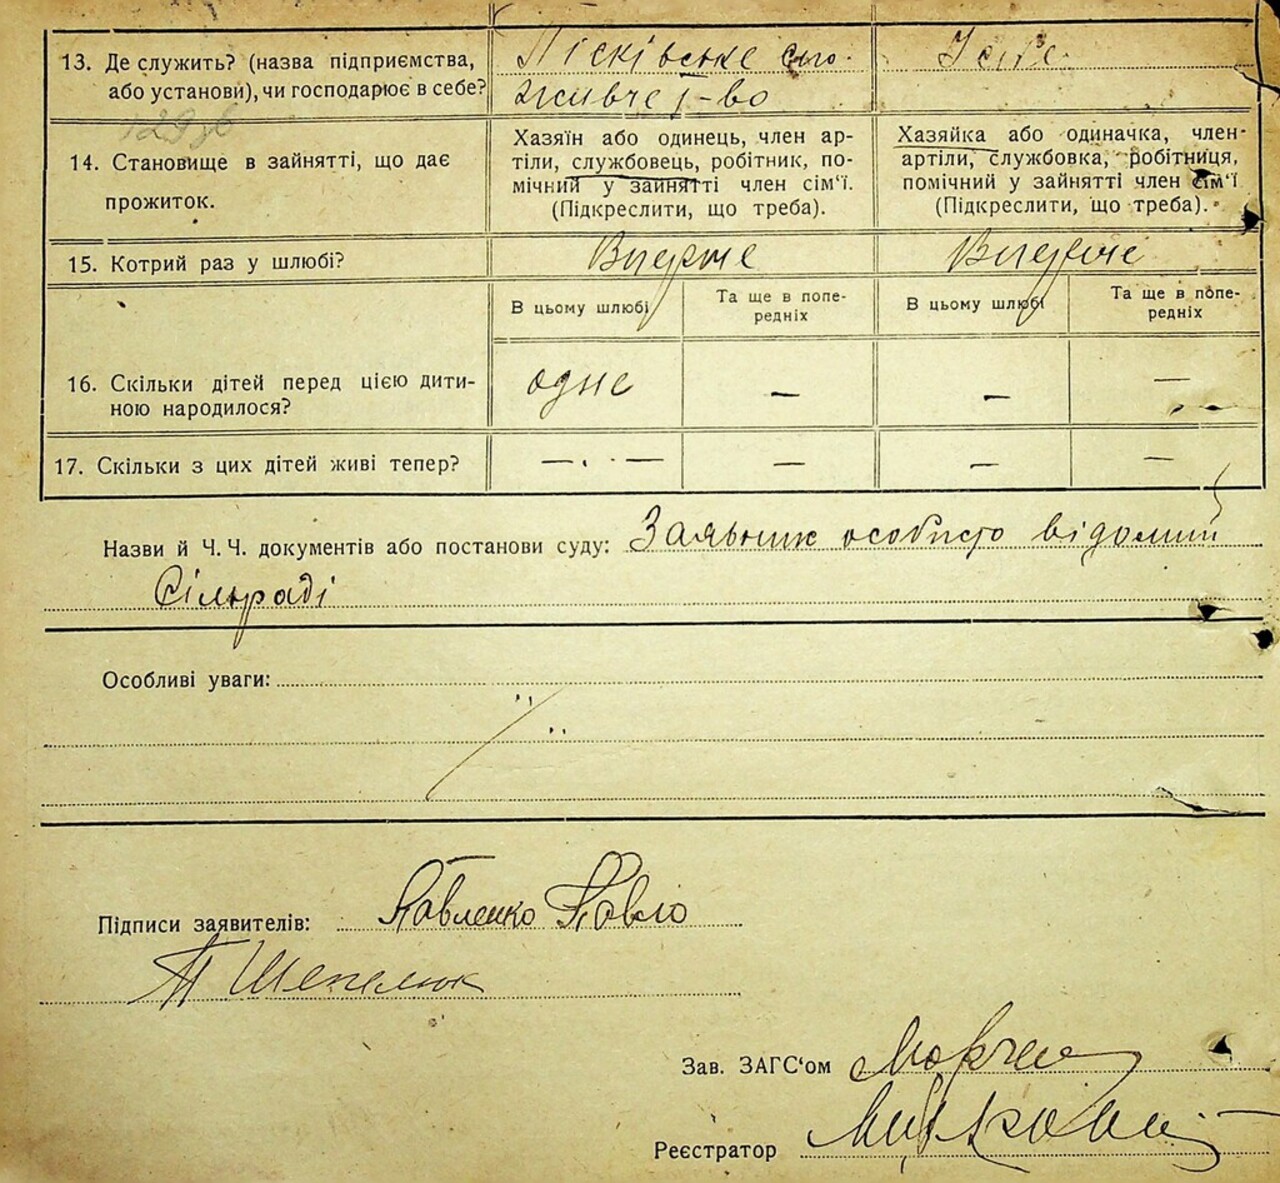 13. Де служить? (назва підприємства, або установи), чи господарює в себе?
Пісківське спо-
живче т-во
14. Становище в зайнятті, що дає прожиток.
Хазяїн або одинець, член ар-
тіли, службовець, робітник, по-
мічний у зайнятті член сім'ї.
(Підкреслити, що треба).
Хазяйка або одиначка, член-
артіли, службовка, робітниця,
помічний у зайнятті член сім'ї
(Підкреслити, що треба).
15. Котрий раз у шлюбі? Вперше Вперше
В цьому шлюбі
Та ще в попе-
редніх
В цьому шлюбі
Та ще в попе-
редніх
16. Скільки дітей перед цією дити-
ною народилося?
одне — — —
17. Скільки з цих дітей живі тепер? — . . — — — —
Назви й Ч. Ч. документів або постанови суду: Заявник особисто відомий
Сільраді
Особливі уваги:
Підписи заявителів: Павленко Павло
П Шепелюк
Зав. ЗАГС'ом
Реєстратор